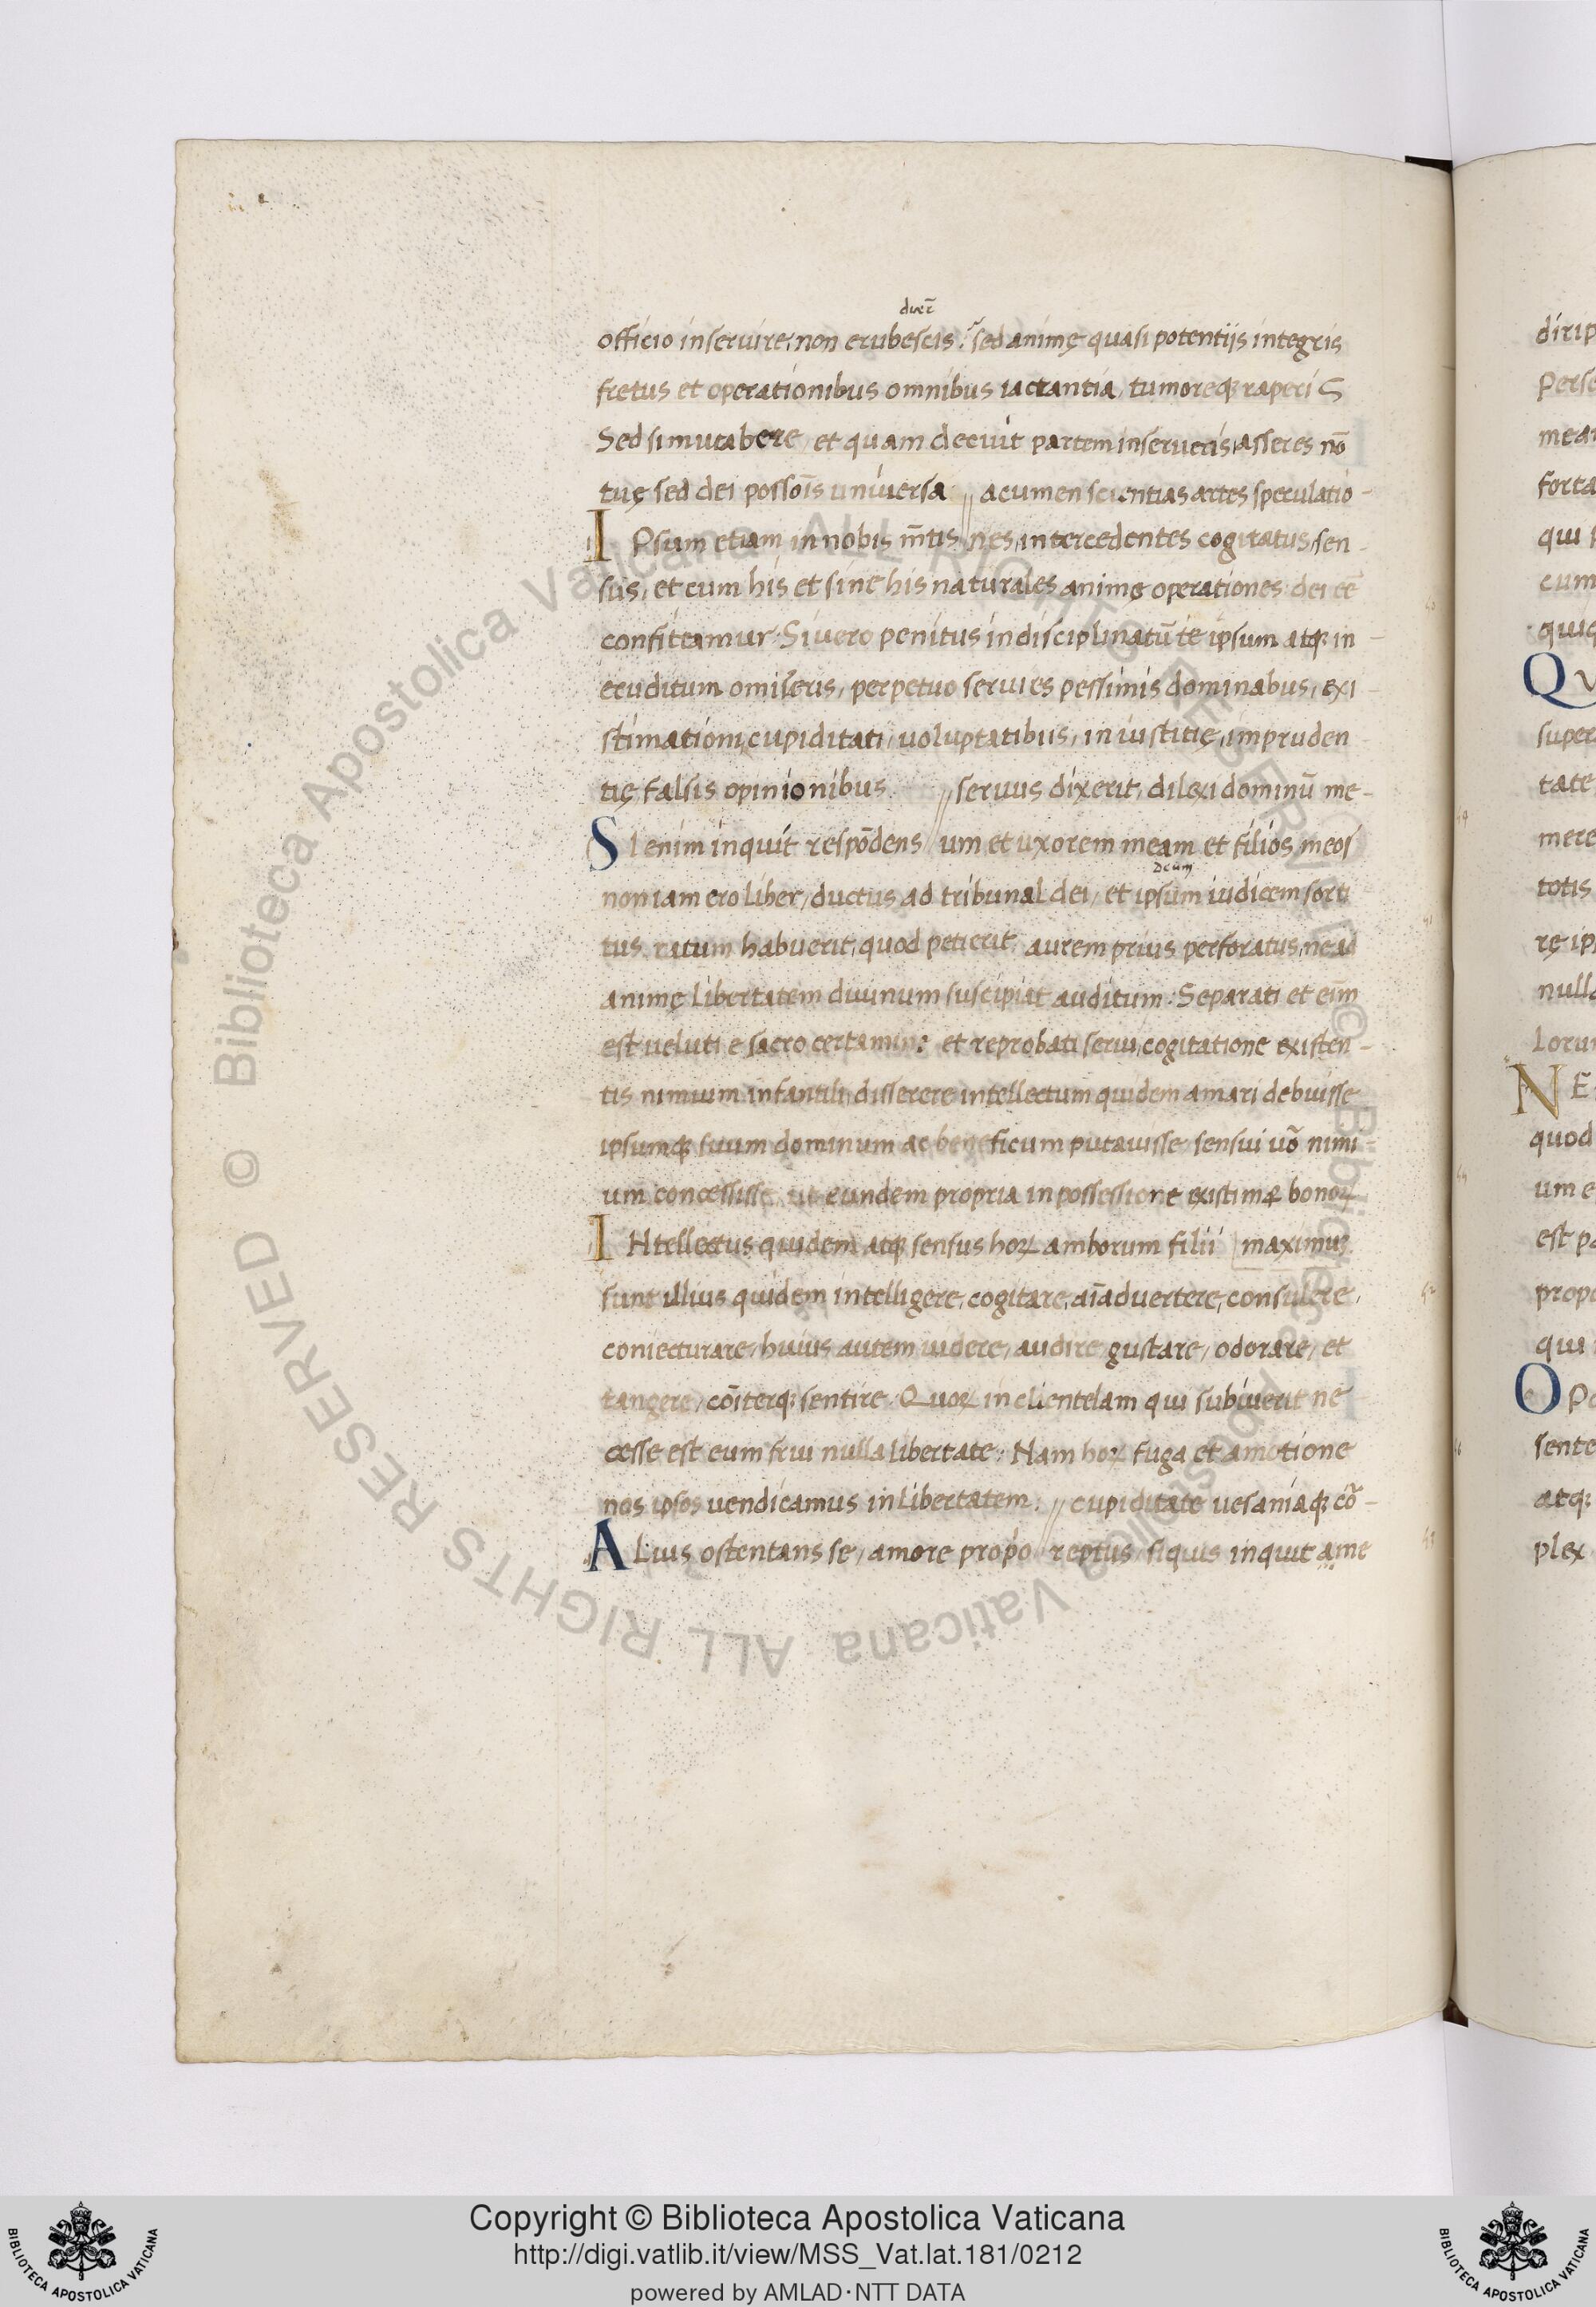 dueē
officio inseruire, non erubescis. sed animę quasi potentijs integris
fretus et operationibus omnibus iactantia, tumoreqꝫ raperis
Sed si mutabere, et quam decuit partem inserueris, asseres nō
tuę sed dei possōis uniuersa // acumen scientias artes speculatio-
IPsum etiam in nobis m̄tis // nes, intercedentes cogitatus, sen-
sus, et cum his et sine his naturales animę operationes dei eē
confiteamur. Si uero penitus indisciplinatū te ipsum atqꝫ in-
eruditum omiseris, perpetuo seruies pessimis dominabus, exi-
stimationi, cupiditati, uoluptatibus, iniustitię, impruden
tię falsis opinionibus // seruus dixerit, dilexi dominū me-
SI enim inquit respōdens // um et uxorem meam et filios meos
deum
non iam ero liber, ductus ad tribunal dei, et ipsum iudicem sorti
tus ratum habuerit, quod petierit aurem prius perforatus, ne ad
animę libertatem diuinum suscipiat auditum: Separati et eīm
est ueluti e sacro certamine et reprobati serui, cogitatione existen-
tis nimium infantili, disserere intellectum quidem amari debuisse
ipsumqꝫ suum dominum ac beneficum putauisse sensui uō nimi-
um concessisse ut eundem propria in possessione existimaꝝ bonoꝝ
INtellectus quidem atqꝫ sensus hoꝝ amborum filii [maximus
sunt illius quidem intelligere, cogitare, aīaduertere, consulere,
coniecturare, huius autem uidere, audire gustare, odorare, et
tangere, cōiterqꝫ sentire. Quoꝝ in clientelam qui subiuerit ne
cesse est eum frui nulla libertate: Nam hoꝝ fuga et amotione
nos ipsos uendicamus in libertatem: // cupiditate uesaniaqꝫ cō-
ALius ostentans se, amore prop̄o // reptus, siquis inquit a me
dirip
Perse
mea
forta
qui
cum
quiq
QV
super
tate
mere
totis
rę ip
nulla
Loru
NE
quod
um e
est p
propo
qui
OPo
sente
atqꝫ
plex
© Biblioteca Apostolica Vaticana ALL RIGHTS RESERVED © Biblioteca Apostolica Vaticana ALL RIGHTS RESERVED
Copyright © Biblioteca Apostolica Vaticana
http://digi.vatlib.it/view/MSS_Vat.lat.181/0212
powered by AMLAD·NTT DATA
BIBLIOTECA APOSTOLICA VATICANA
BIBLIOTECA APOSTOLICA VATICANA